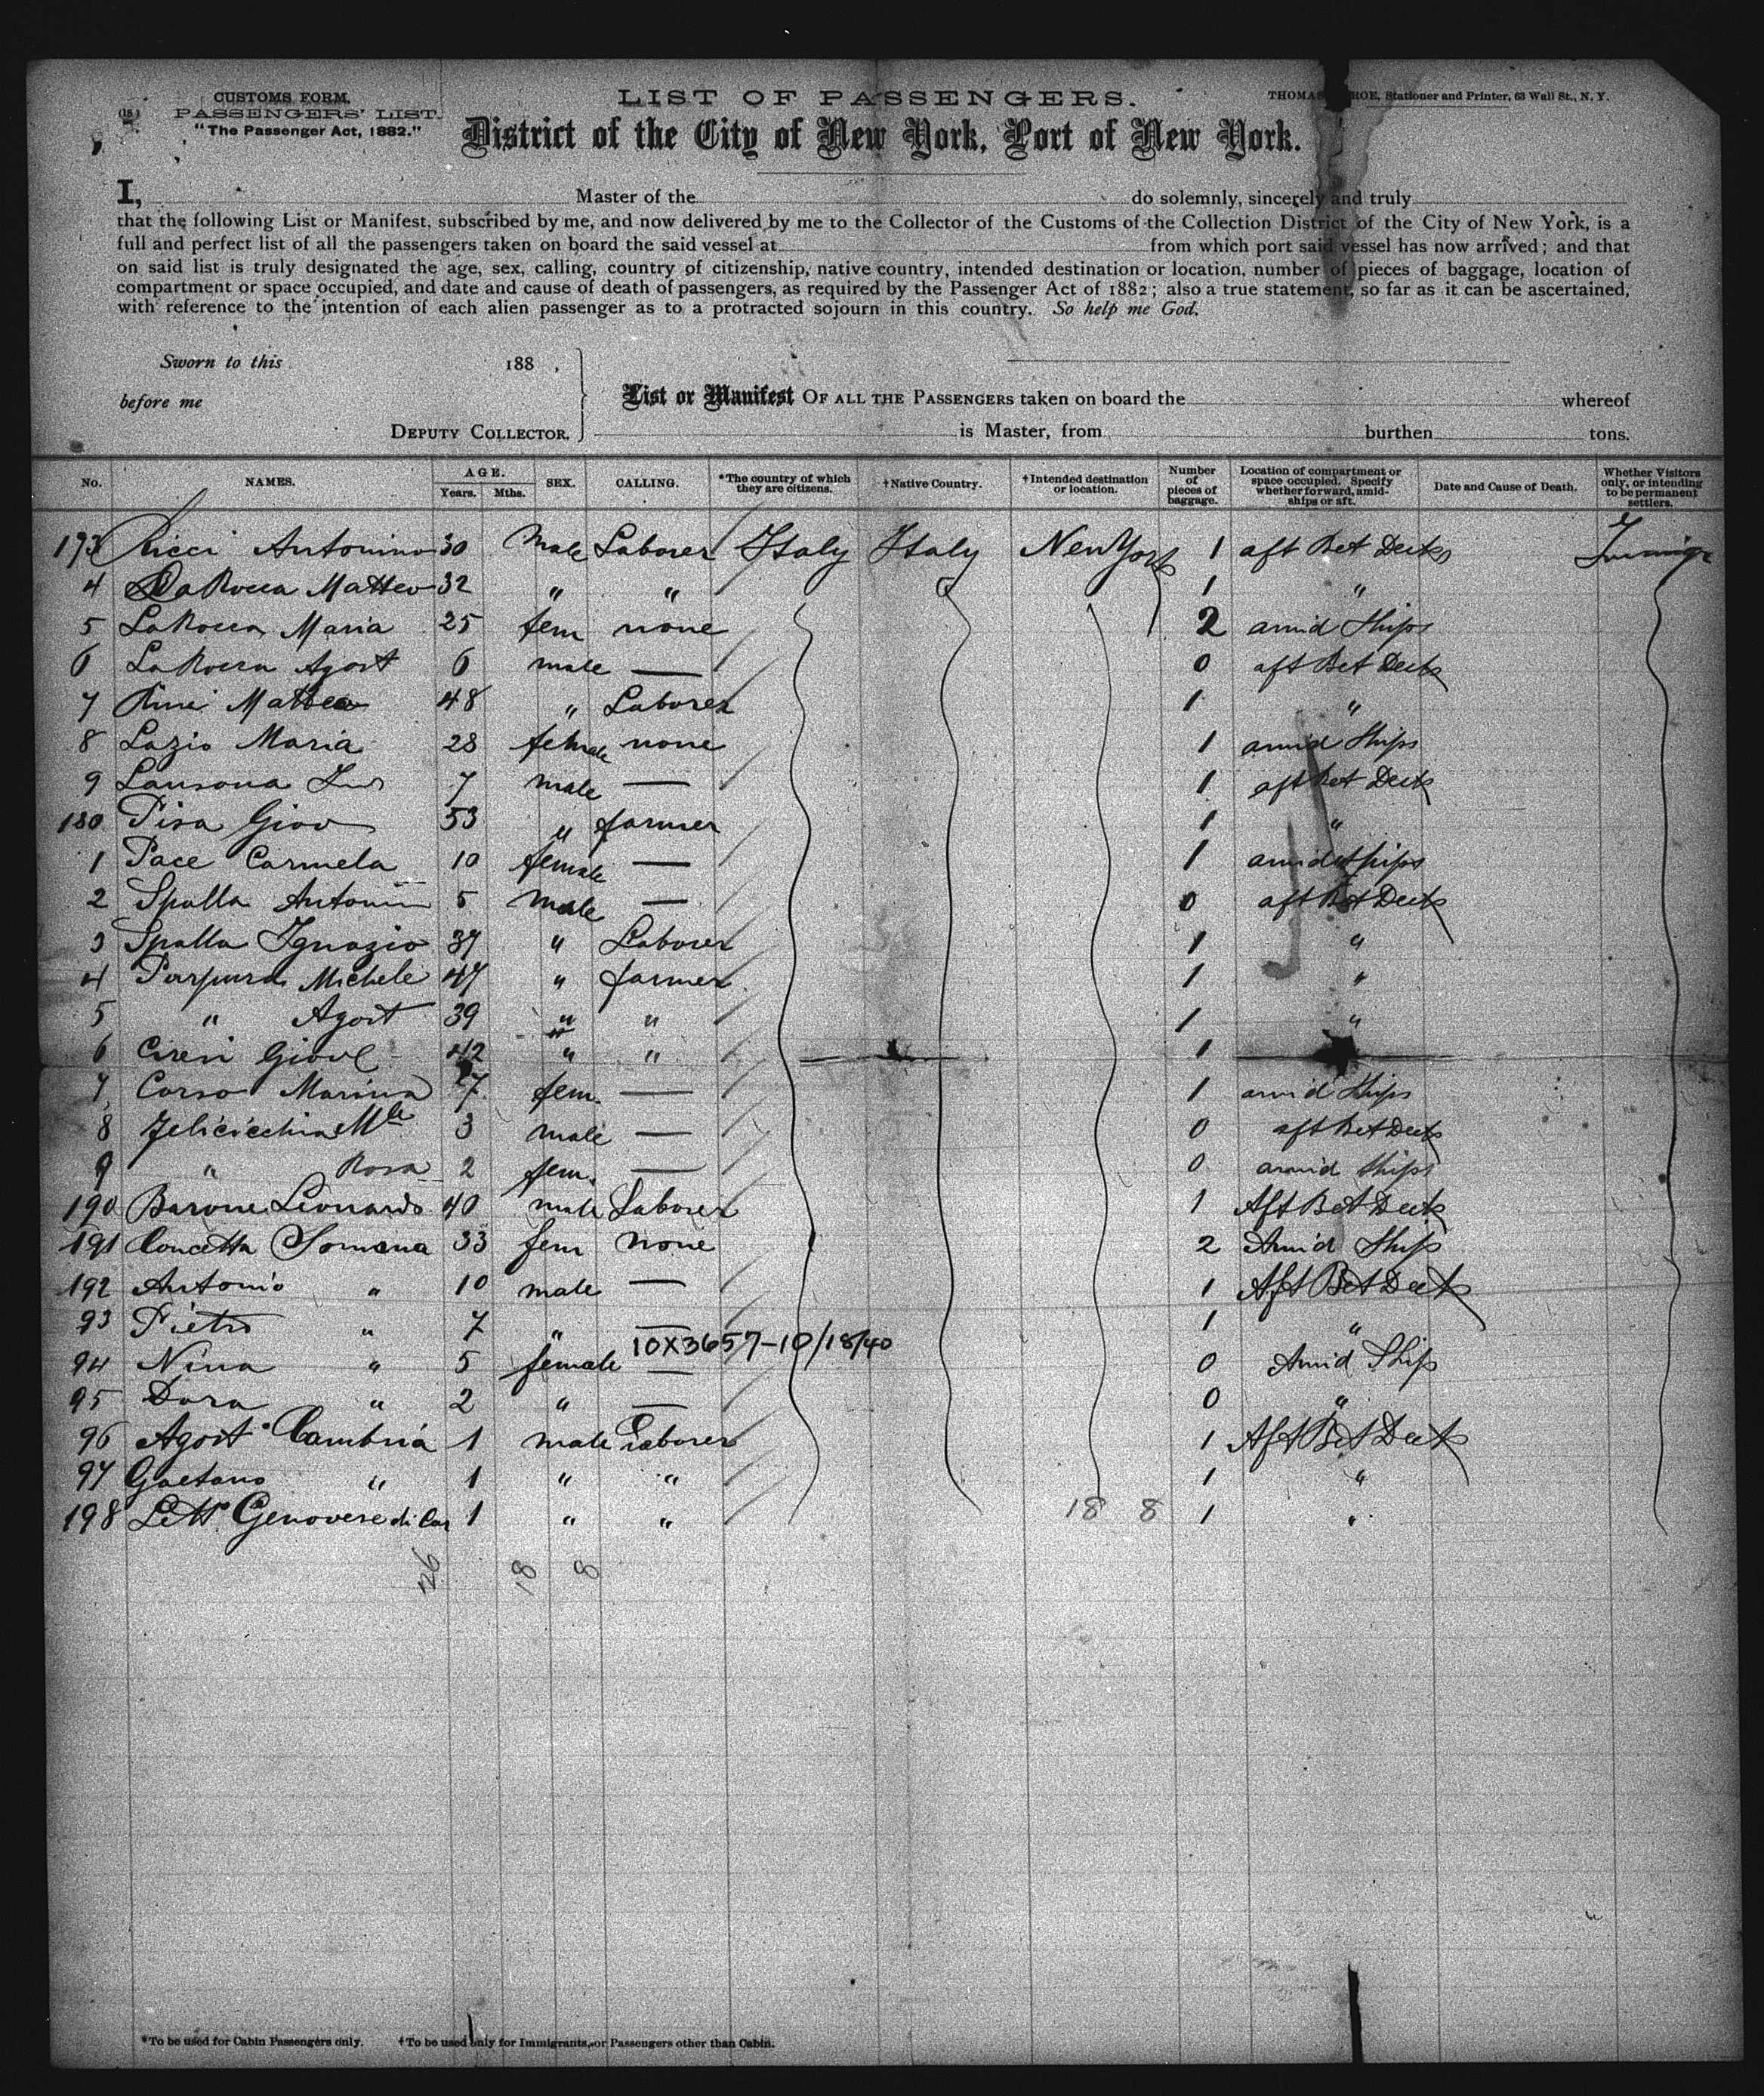 CUSTOMS FORM.
PASSENGERS' LIST.
"The Passenger Act, 1882."
LIST OF PASSENGERS.
THOMAS Stationer and Printer, 63 Wall St., N. Y.
District of the City of New York, Port of New York.
I, Master of the do solemnly, sincerely and truly
that the following List or Manifest, subscribed by me, and now delivered by me to the Collector of the Customs of the Collection District of the City of New York, is a
full and perfect list of all the passengers taken on board the said vessel at from which port said vessel has now arrived; and that
on said list is truly designated the age, sex, calling, country of citizenship, native country, intended destination or location, number of pieces of baggage, location of
compartment or space occupied, and date and cause of death of passengers, as required by the Passenger Act of 1882; also a true statement, so far as it can be ascertained,
with reference to the intention of each alien passenger as to a protracted sojourn in this country. So help me God.
Sworn to this 188 .
before me
DEPUTY COLLECTOR.
List or Manifest OF ALL THE PASSENGERS taken on board the whereof
is Master, from burthen tons.
No. NAMES. AGE. Years. Mths. SEX. CALLING. *The country of which they are citizens. †Native Country. †Intended destination or location. Number of pieces of baggage. Location of compartment or space occupied. Specify whether forward, amidships or aft. Date and Cause of Death. Whether Visitors only, or intending to be permanent settlers.
173 Ricci Antonino 30 Male Laborer Italy Italy New York 1 aft Bet Decks
4 LaRocca Matteo 32 " " 1 "
5 LaRocca Maria 25 fem none 2 amid Ships
6 LaRocca Agost 6 male — 0 aft Bet Decks
7 Matteo 48 " Laborer 1 "
8 Lazio Maria 28 female none 1 amid Ships
9 7 male — 1 aft Bet Decks
180 Pisa Giov 53 " farmer 1 "
1 Pace Carmela 10 female — 1 amid Ships
2 Spalla Antonin 5 male — 0 aft Bet Decks
3 Spalla Ignazio 37 " Laborer 1 "
4 Purpura Michele 47 " farmer 1 "
5 " Agost 39 " " 1 "
6 42 " " 1
7 Corso Marina 27 fem. — 1 amid Ships
8 3 male — 0 aft Bet Decks
9 " Rosa 2 fem. — 0 amid Ships
190 Barone Leonardo 40 male Laborer 1 Aft Bet Decks
191 Concetta 33 fem none 2 Amid Ship
192 Antonio " 10 male — 1 Aft Bet Deck
93 Pietro " 7 " — 1 "
10X3657-10/18/40
94 Nina " 5 female — 0 Amid Ship
95 Dora " 2 " — 0 "
96 Agost Cambria 1 male Laborer 1 Aft Bet Deck
97 Gaetano " 1 " " 1 "
198 Genovese di 1 " " 18 8 1 "
26 18 8
*To be used for Cabin Passengers only. †To be used only for Immigrants, or Passengers other than Cabin.